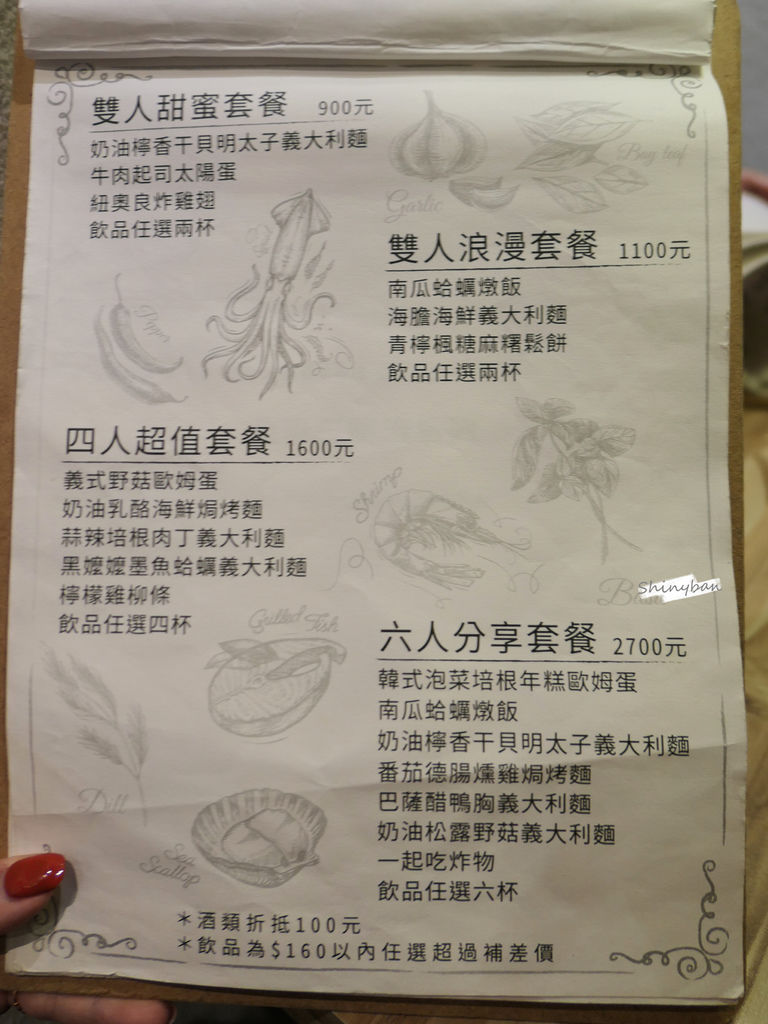 雙人甜蜜套餐 900元
奶油檸香干貝明太子義大利麵
牛肉起司太陽蛋
紐奧良炸雞翅
飲品任選兩杯
Garlic
Bay leaf
雙人浪漫套餐 1100元
南瓜蛤蠣燉飯
海膽海鮮義大利麵
青檸楓糖麻糬鬆餅
飲品任選兩杯
四人超值套餐 1600元
義式野菇歐姆蛋
奶油乳酪海鮮焗烤麵
蒜辣培根肉丁義大利麵
黑嬤嬤墨魚蛤蠣義大利麵
檸檬雞柳條
飲品任選四杯
Shrimp
Shinyban
Grilled Fish
六人分享套餐 2700元
韓式泡菜培根年糕歐姆蛋
南瓜蛤蠣燉飯
奶油檸香干貝明太子義大利麵
番茄德腸燻雞焗烤麵
巴薩醋鴨胸義大利麵
奶油松露野菇義大利麵
一起吃炸物
飲品任選六杯
Dill
Sea Scallop
＊酒類折抵100元
＊飲品為$160以內任選超過補差價